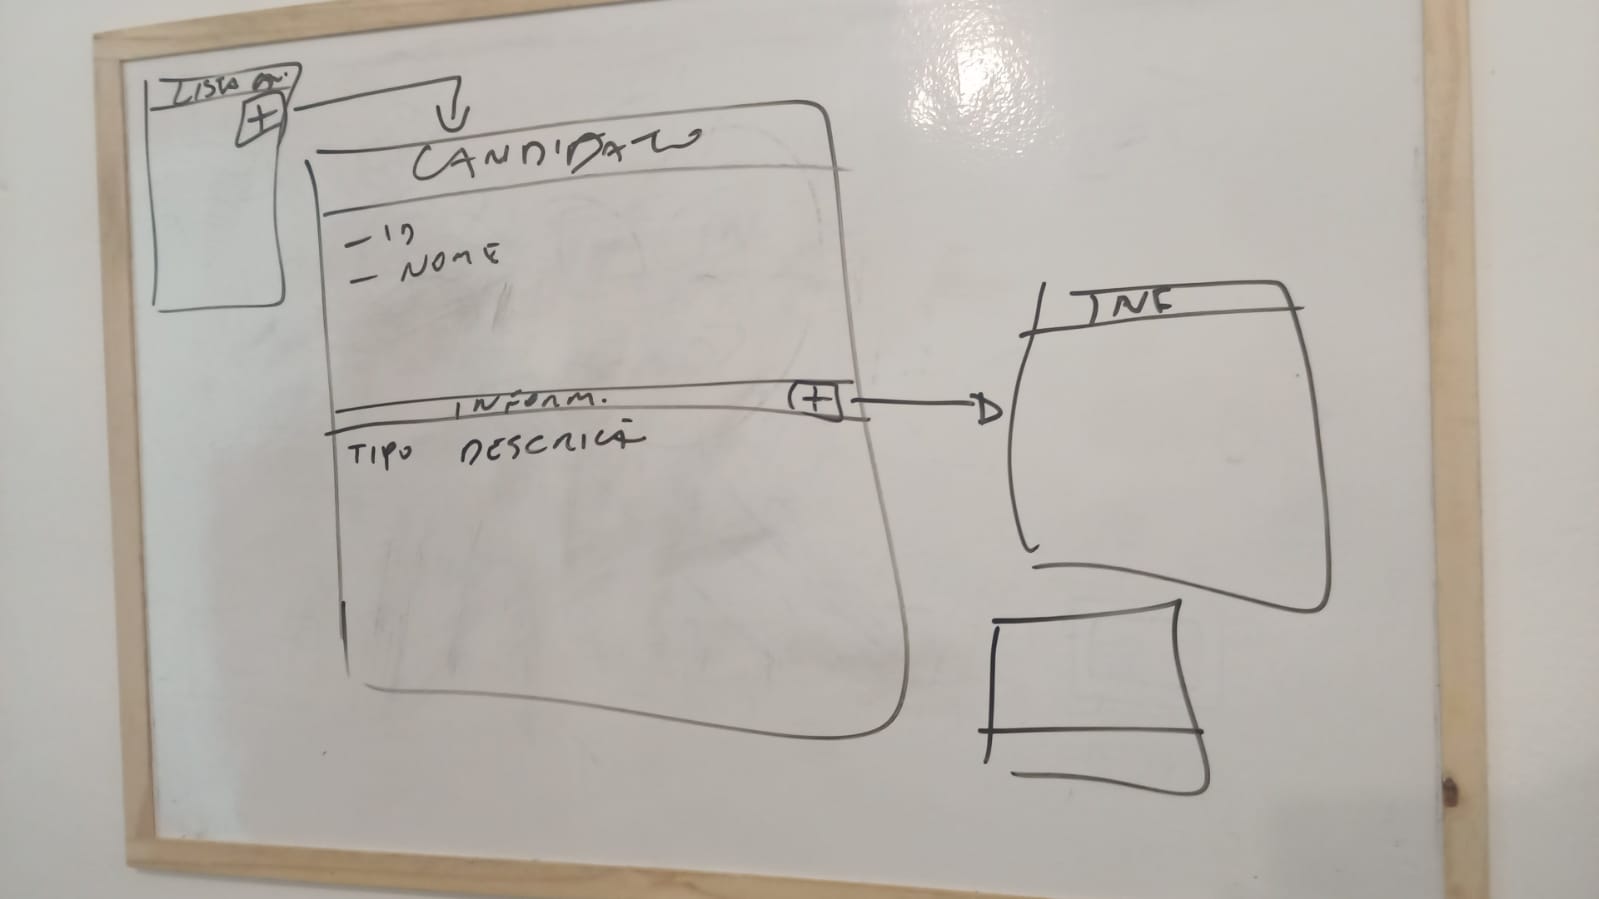 LISTA
+
CANDIDATO
- ID
- NOME
INFORM. +
TIPO DESCRIÇÃ
INF